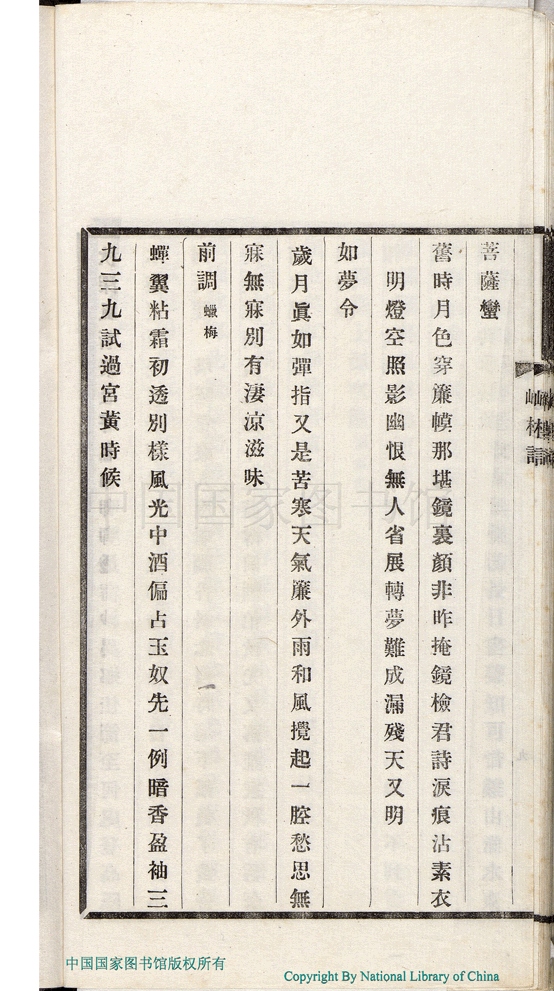 菩薩蠻
舊時月色穿簾幙那堪鏡裏顏非昨掩鏡檢君詩淚痕沾素衣
明燈空照影幽恨無人省展轉夢難成漏殘天又明
如夢令
歲月眞如彈指又是苦寒天氣簾外雨和風攪起一腔愁思無
寐無寐別有淒涼滋味
前調 蠟梅
蟬翼粘霜初透別樣風光中酒偏占玉奴先一例暗香盈袖三
九三九試過宮黃時候
中国国家图书馆
中国国家图书馆版权所有
Copyright By National Library of China